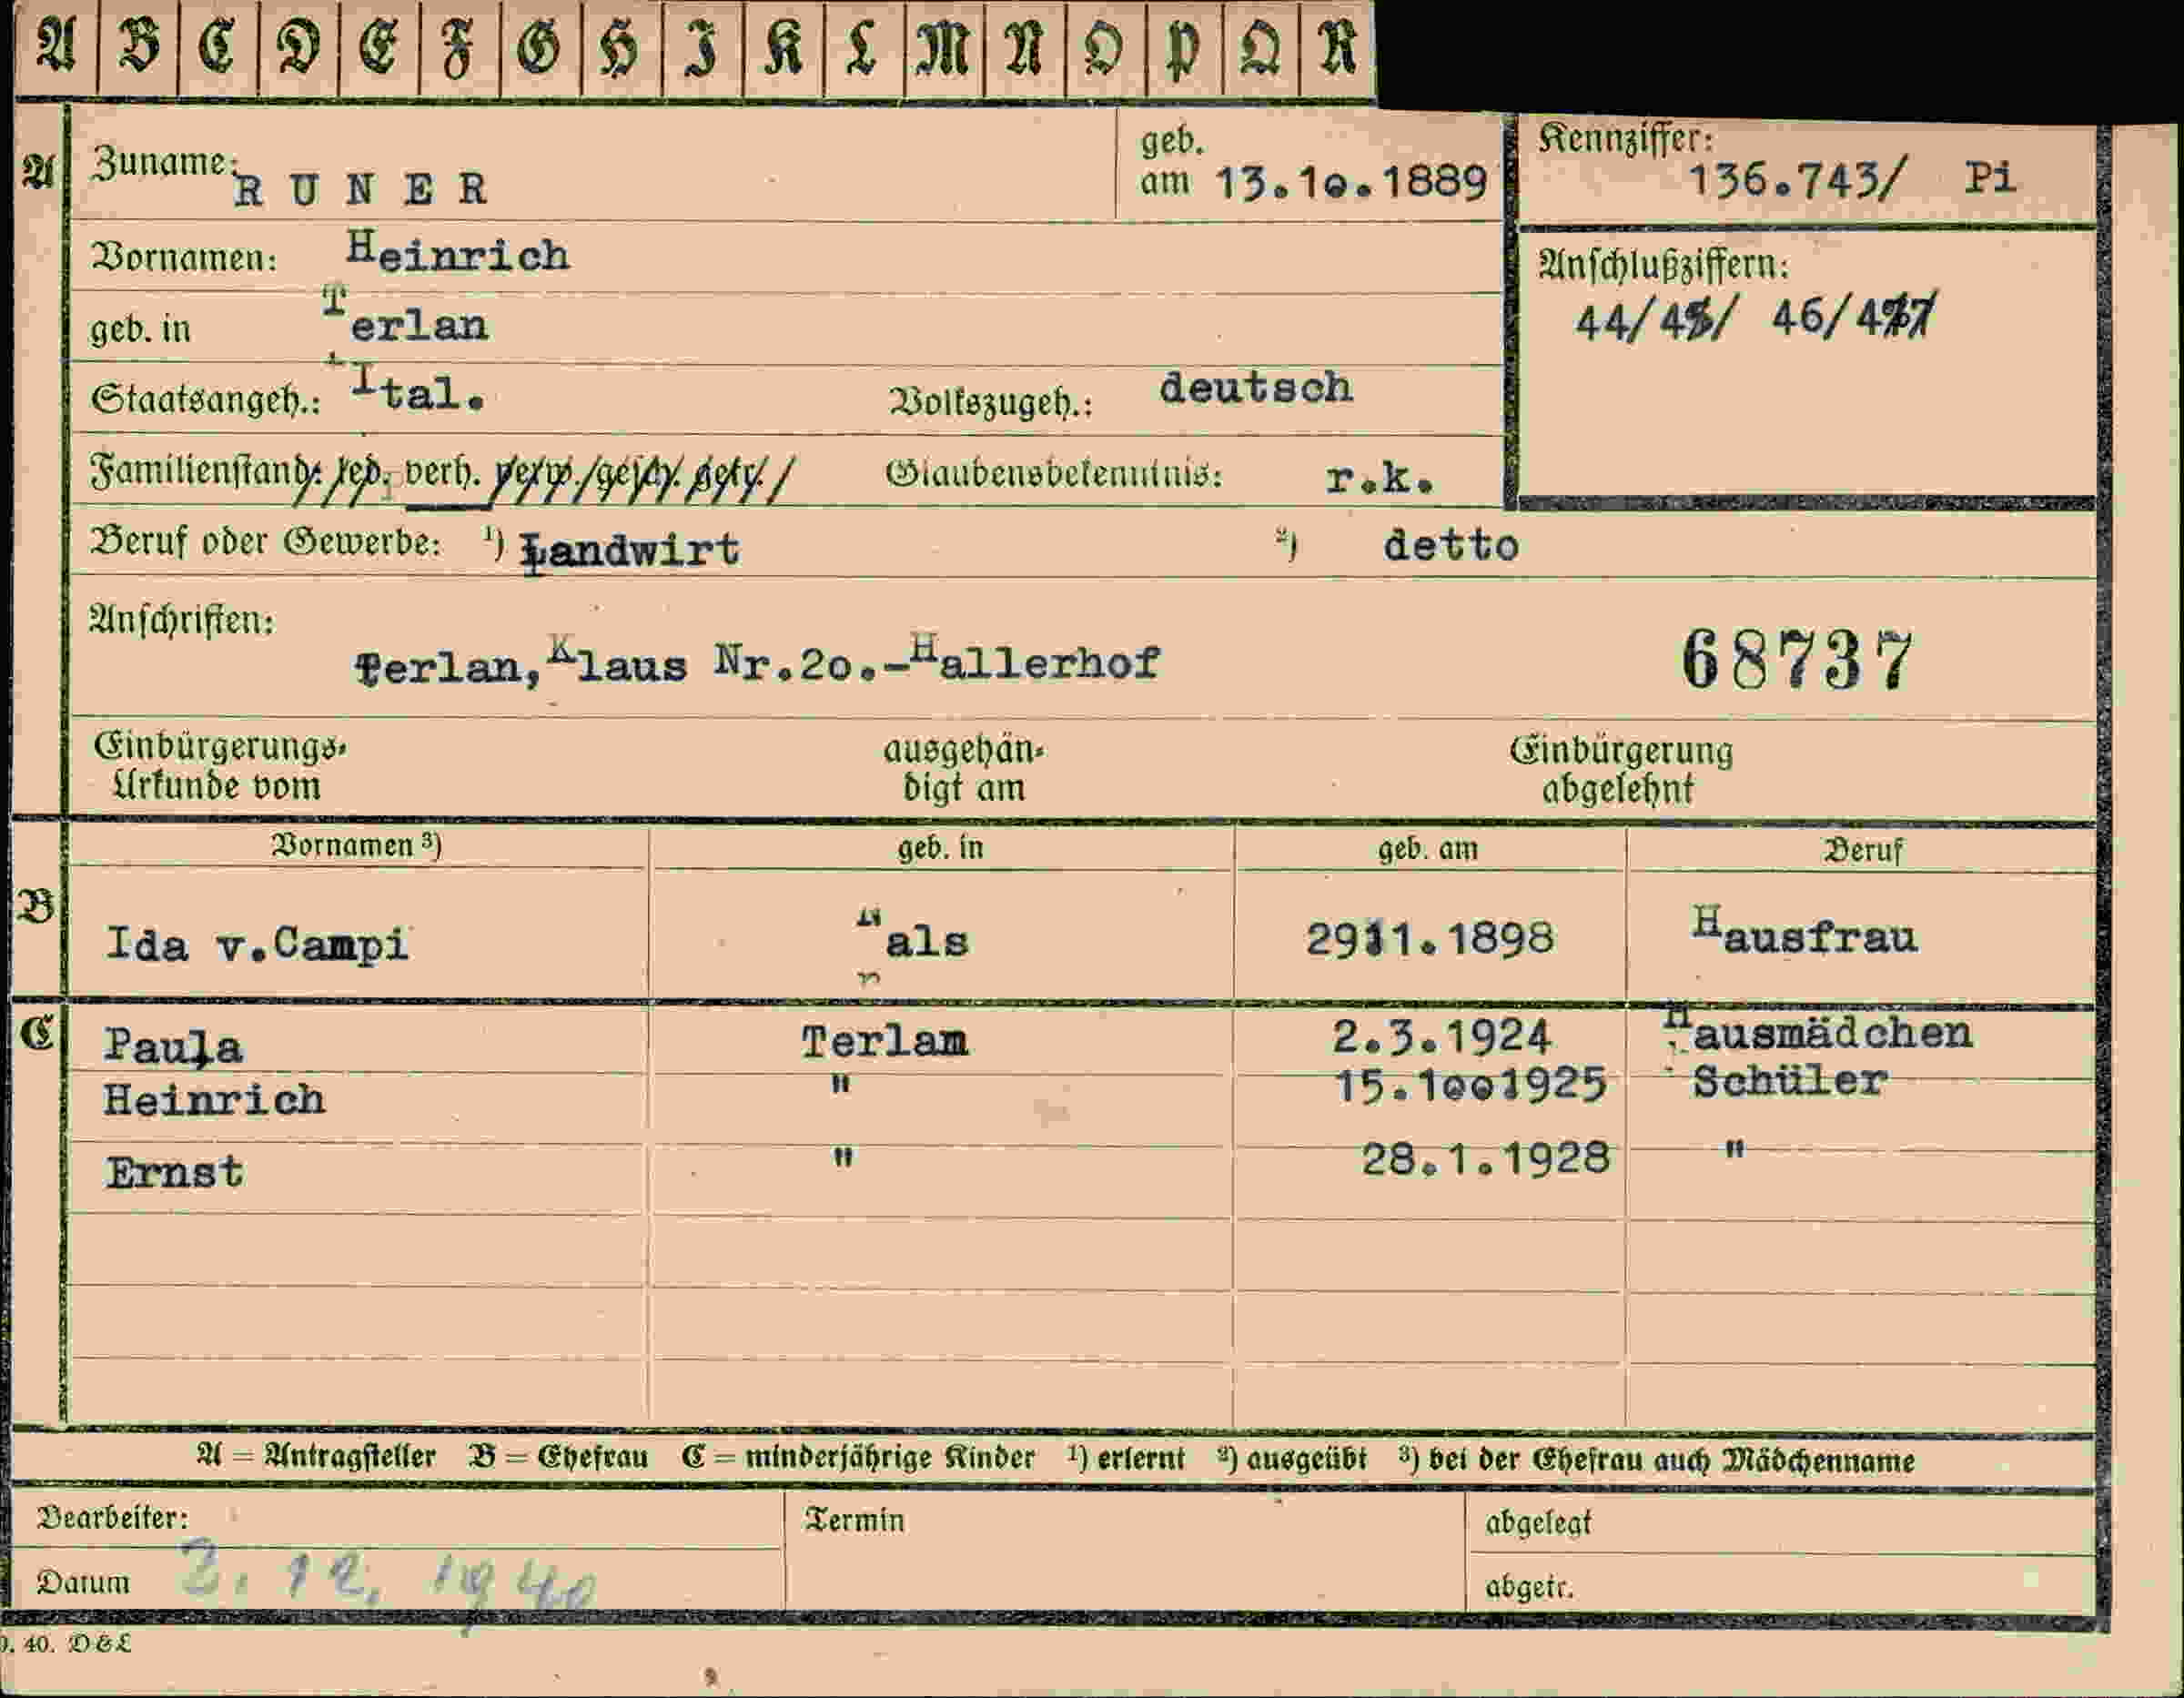 A B C D E F G H I K L M N O P Q R
A Zuname: RUNER geb. am 13.10.1889 Kennziffer: 136.743/ Pi
Vornamen: Heinrich Anschlußziffern:
geb. in Terlan 44/45/ 46/477
Staatsangeh.: Ital. Volkszugeh.: deutsch
Familienstand: led. verh. verw./gesch. getr./ Glaubensbekenntnis: r.k.
Beruf oder Gewerbe: ¹) Landwirt ²) detto
Anschriften:
Terlan, Klaus Nr.20.-Hallerhof 68737
Einbürgerungs- ausgehän- Einbürgerung
Urkunde vom digt am abgelehnt
Vornamen ³) geb. in geb. am Beruf
B Ida v.Campi als 2911.1898 Hausfrau
C Paula Terlan 2.3.1924 Hausmädchen
Heinrich " 15.10.1925 Schüler
Ernst " 28.1.1928 "
A = Antragsteller B = Ehefrau C = minderjährige Kinder ¹) erlernt ²) ausgeübt ³) bei der Ehefrau auch Mädchenname
Bearbeiter: Termin abgelegt
Datum 3. 12. 1940 abgetr.
40. D&L